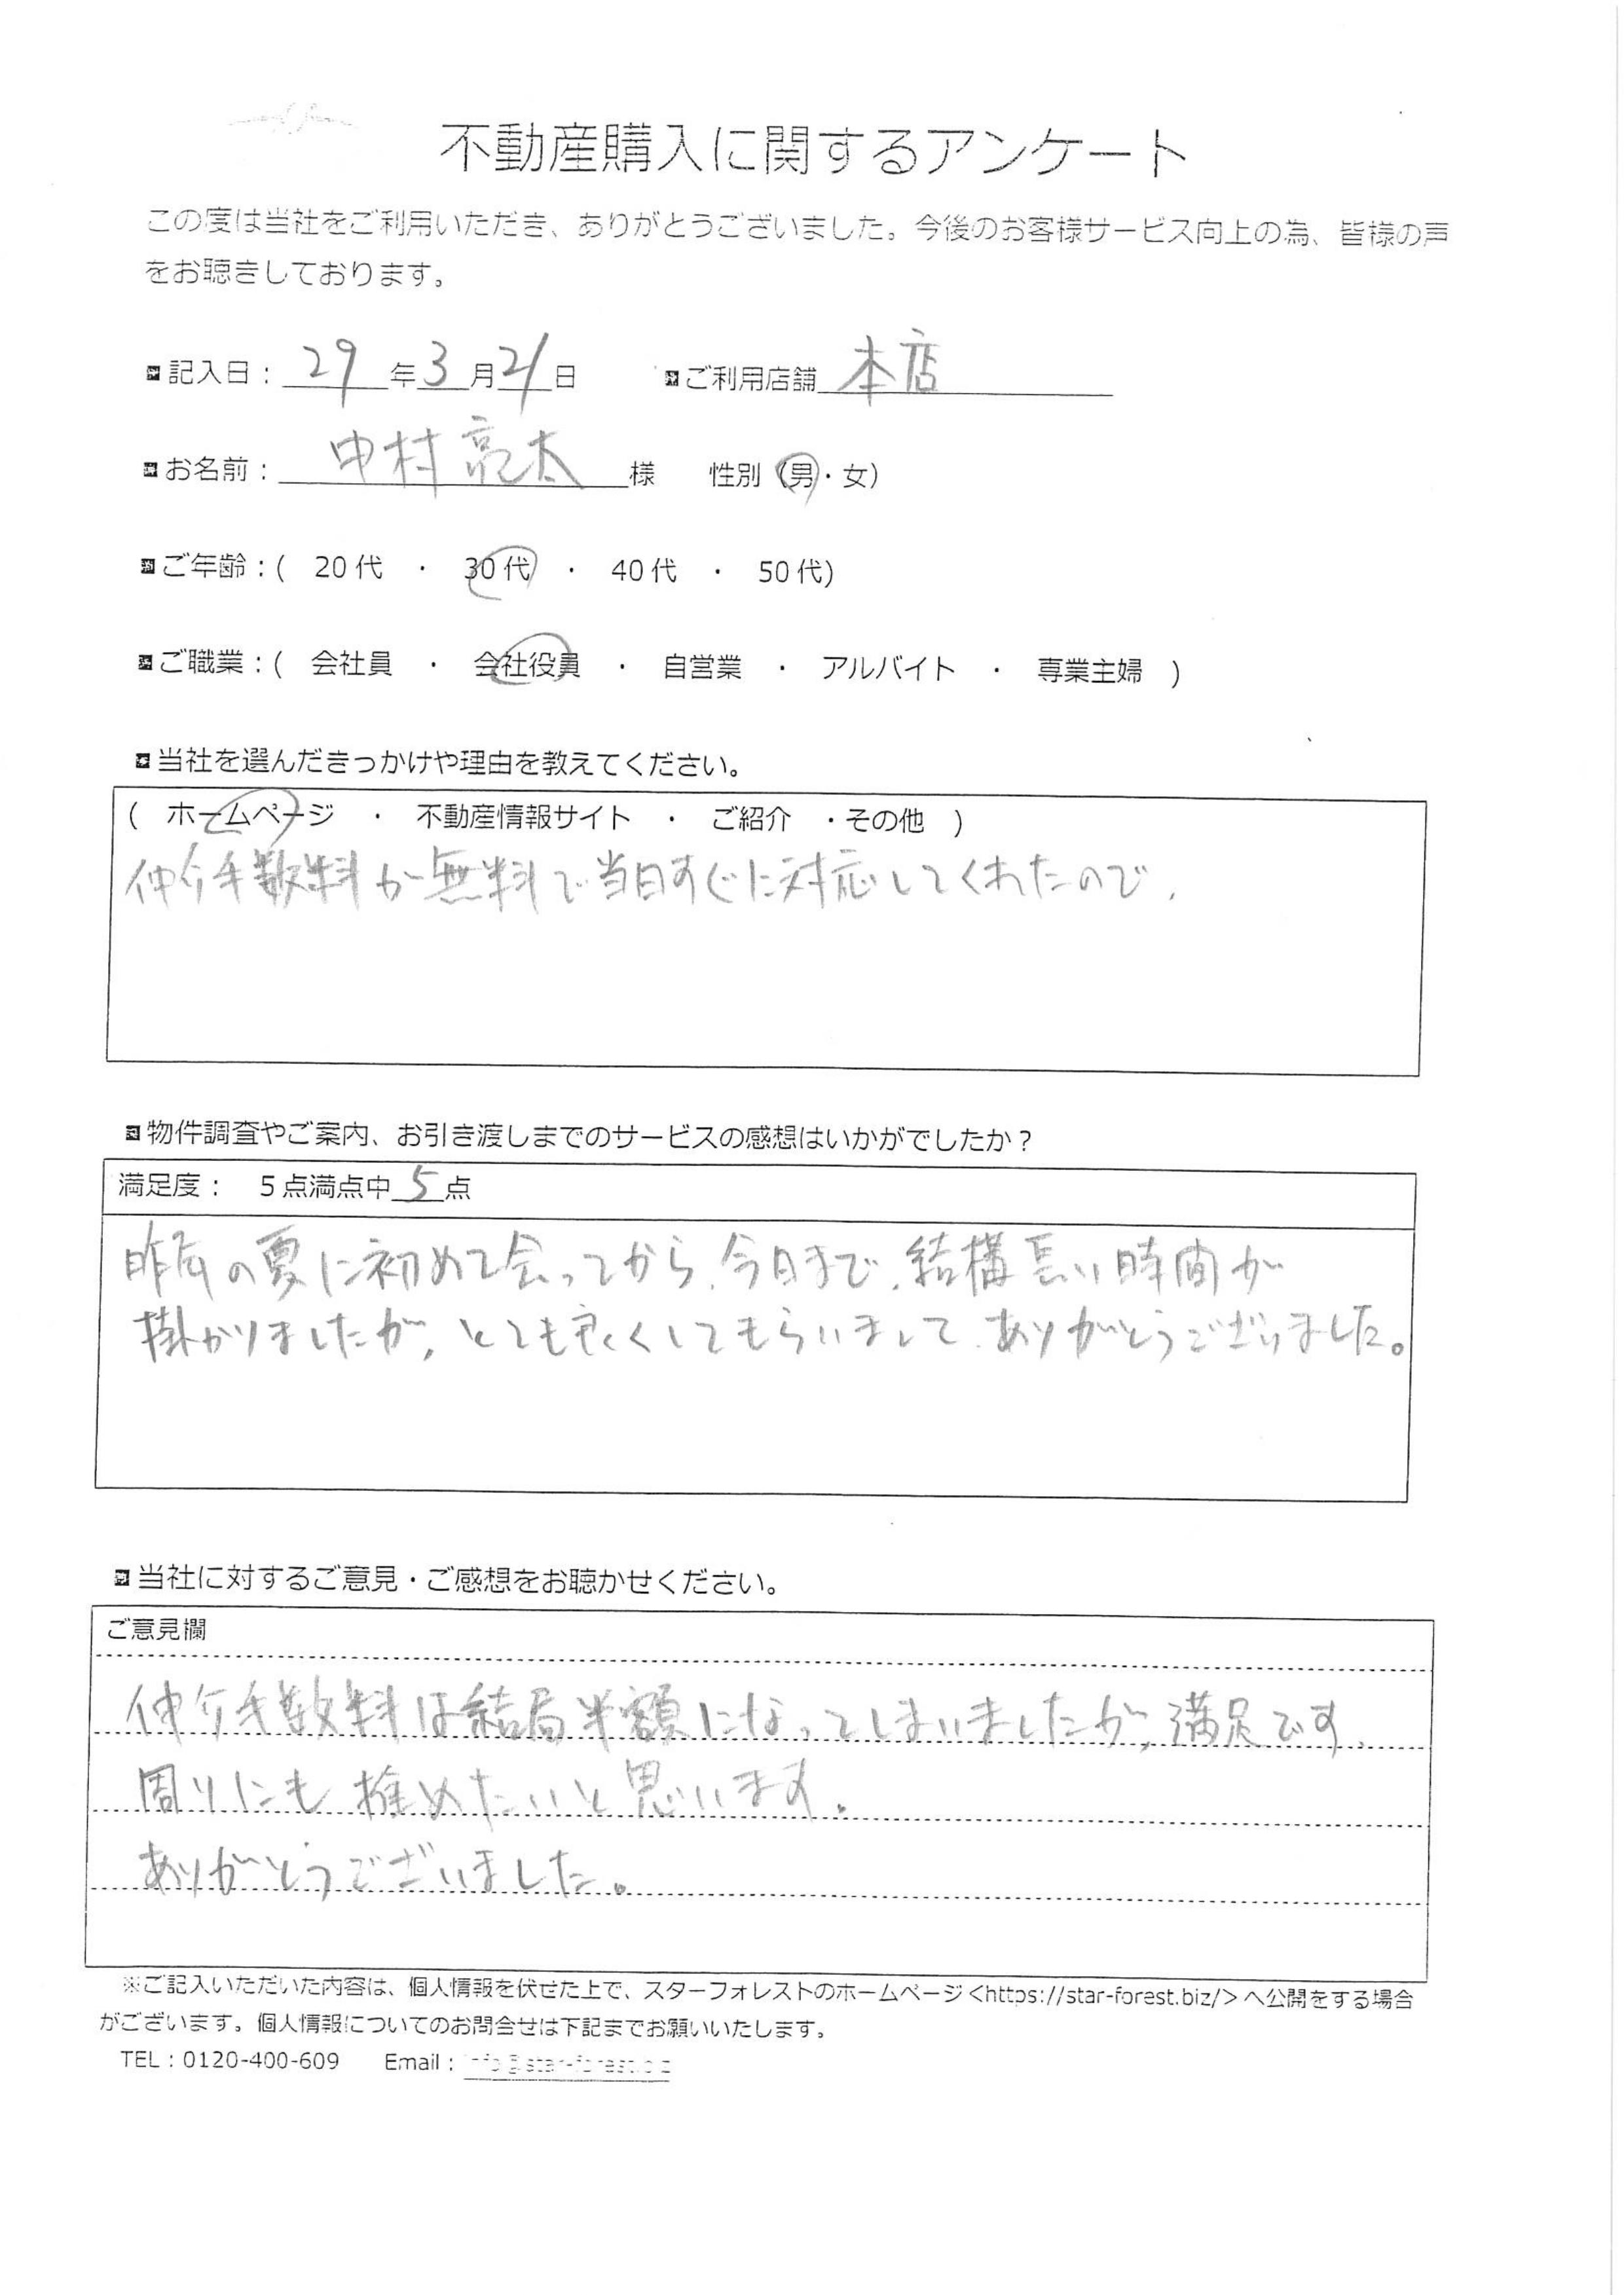 不動産購入に関するアンケート
この度は当社をご利用いただき、ありがとうございました。今後のお客様サービス向上の為、皆様の声
をお聴きしております。
記入日： 29 年 3 月 21 日 ご利用店舗 本店
お名前： 中村 亮太 様 性別（男・女）
ご年齢：( 20代 ・ 30代 ・ 40代 ・ 50代)
ご職業：( 会社員 ・ 会社役員 ・ 自営業 ・ アルバイト ・ 専業主婦 )
当社を選んだきっかけや理由を教えてください。
( ホームページ ・ 不動産情報サイト ・ ご紹介 ・その他 )
仲介手数料が無料で当日すぐに対応してくれたので、
物件調査やご案内、お引き渡しまでのサービスの感想はいかがでしたか？
満足度： 5点満点中 5 点
昨年の夏に初めて会ってから、今日まで、結構長い時間が
掛かりましたが、とても良くしてもらいまして、ありがとうございました。
当社に対するご意見・ご感想をお聴かせください。
ご意見欄
仲介手数料は結局半額になってしまいましたが、満足です、
周りにも推めたいと思います。
ありがとうございました。
※ご記入いただいた内容は、個人情報を伏せた上で、スターフォレストのホームページ<https://star-forest.biz/>へ公開をする場合
がございます。個人情報についてのお問合せは下記までお願いいたします。
TEL：0120-400-609 Email：info@star-forest.biz